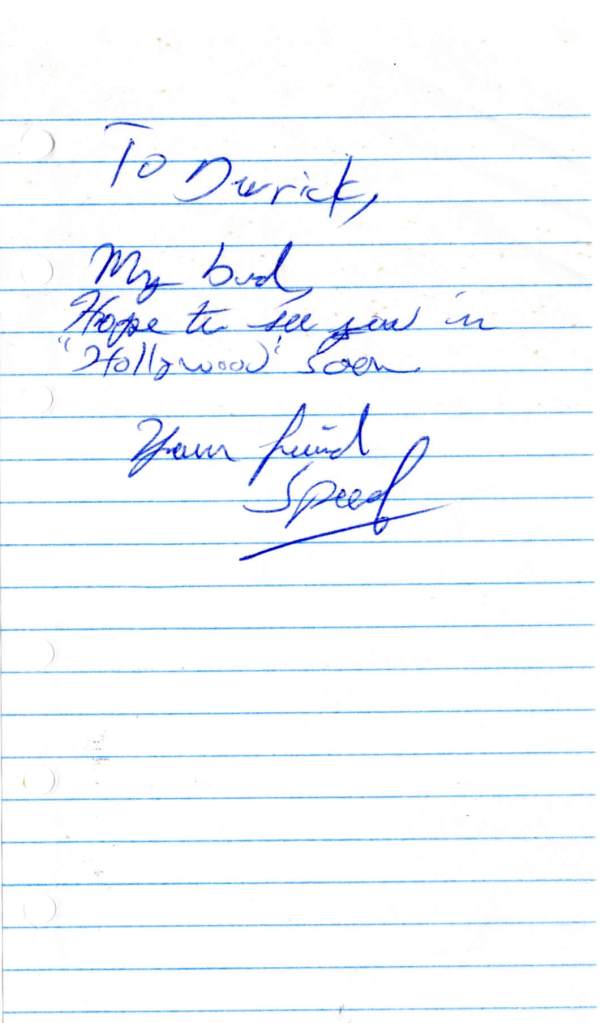 To Derrick,
My bud,
Hope to see you in
"Hollywood" Soon
Your friend
Speed